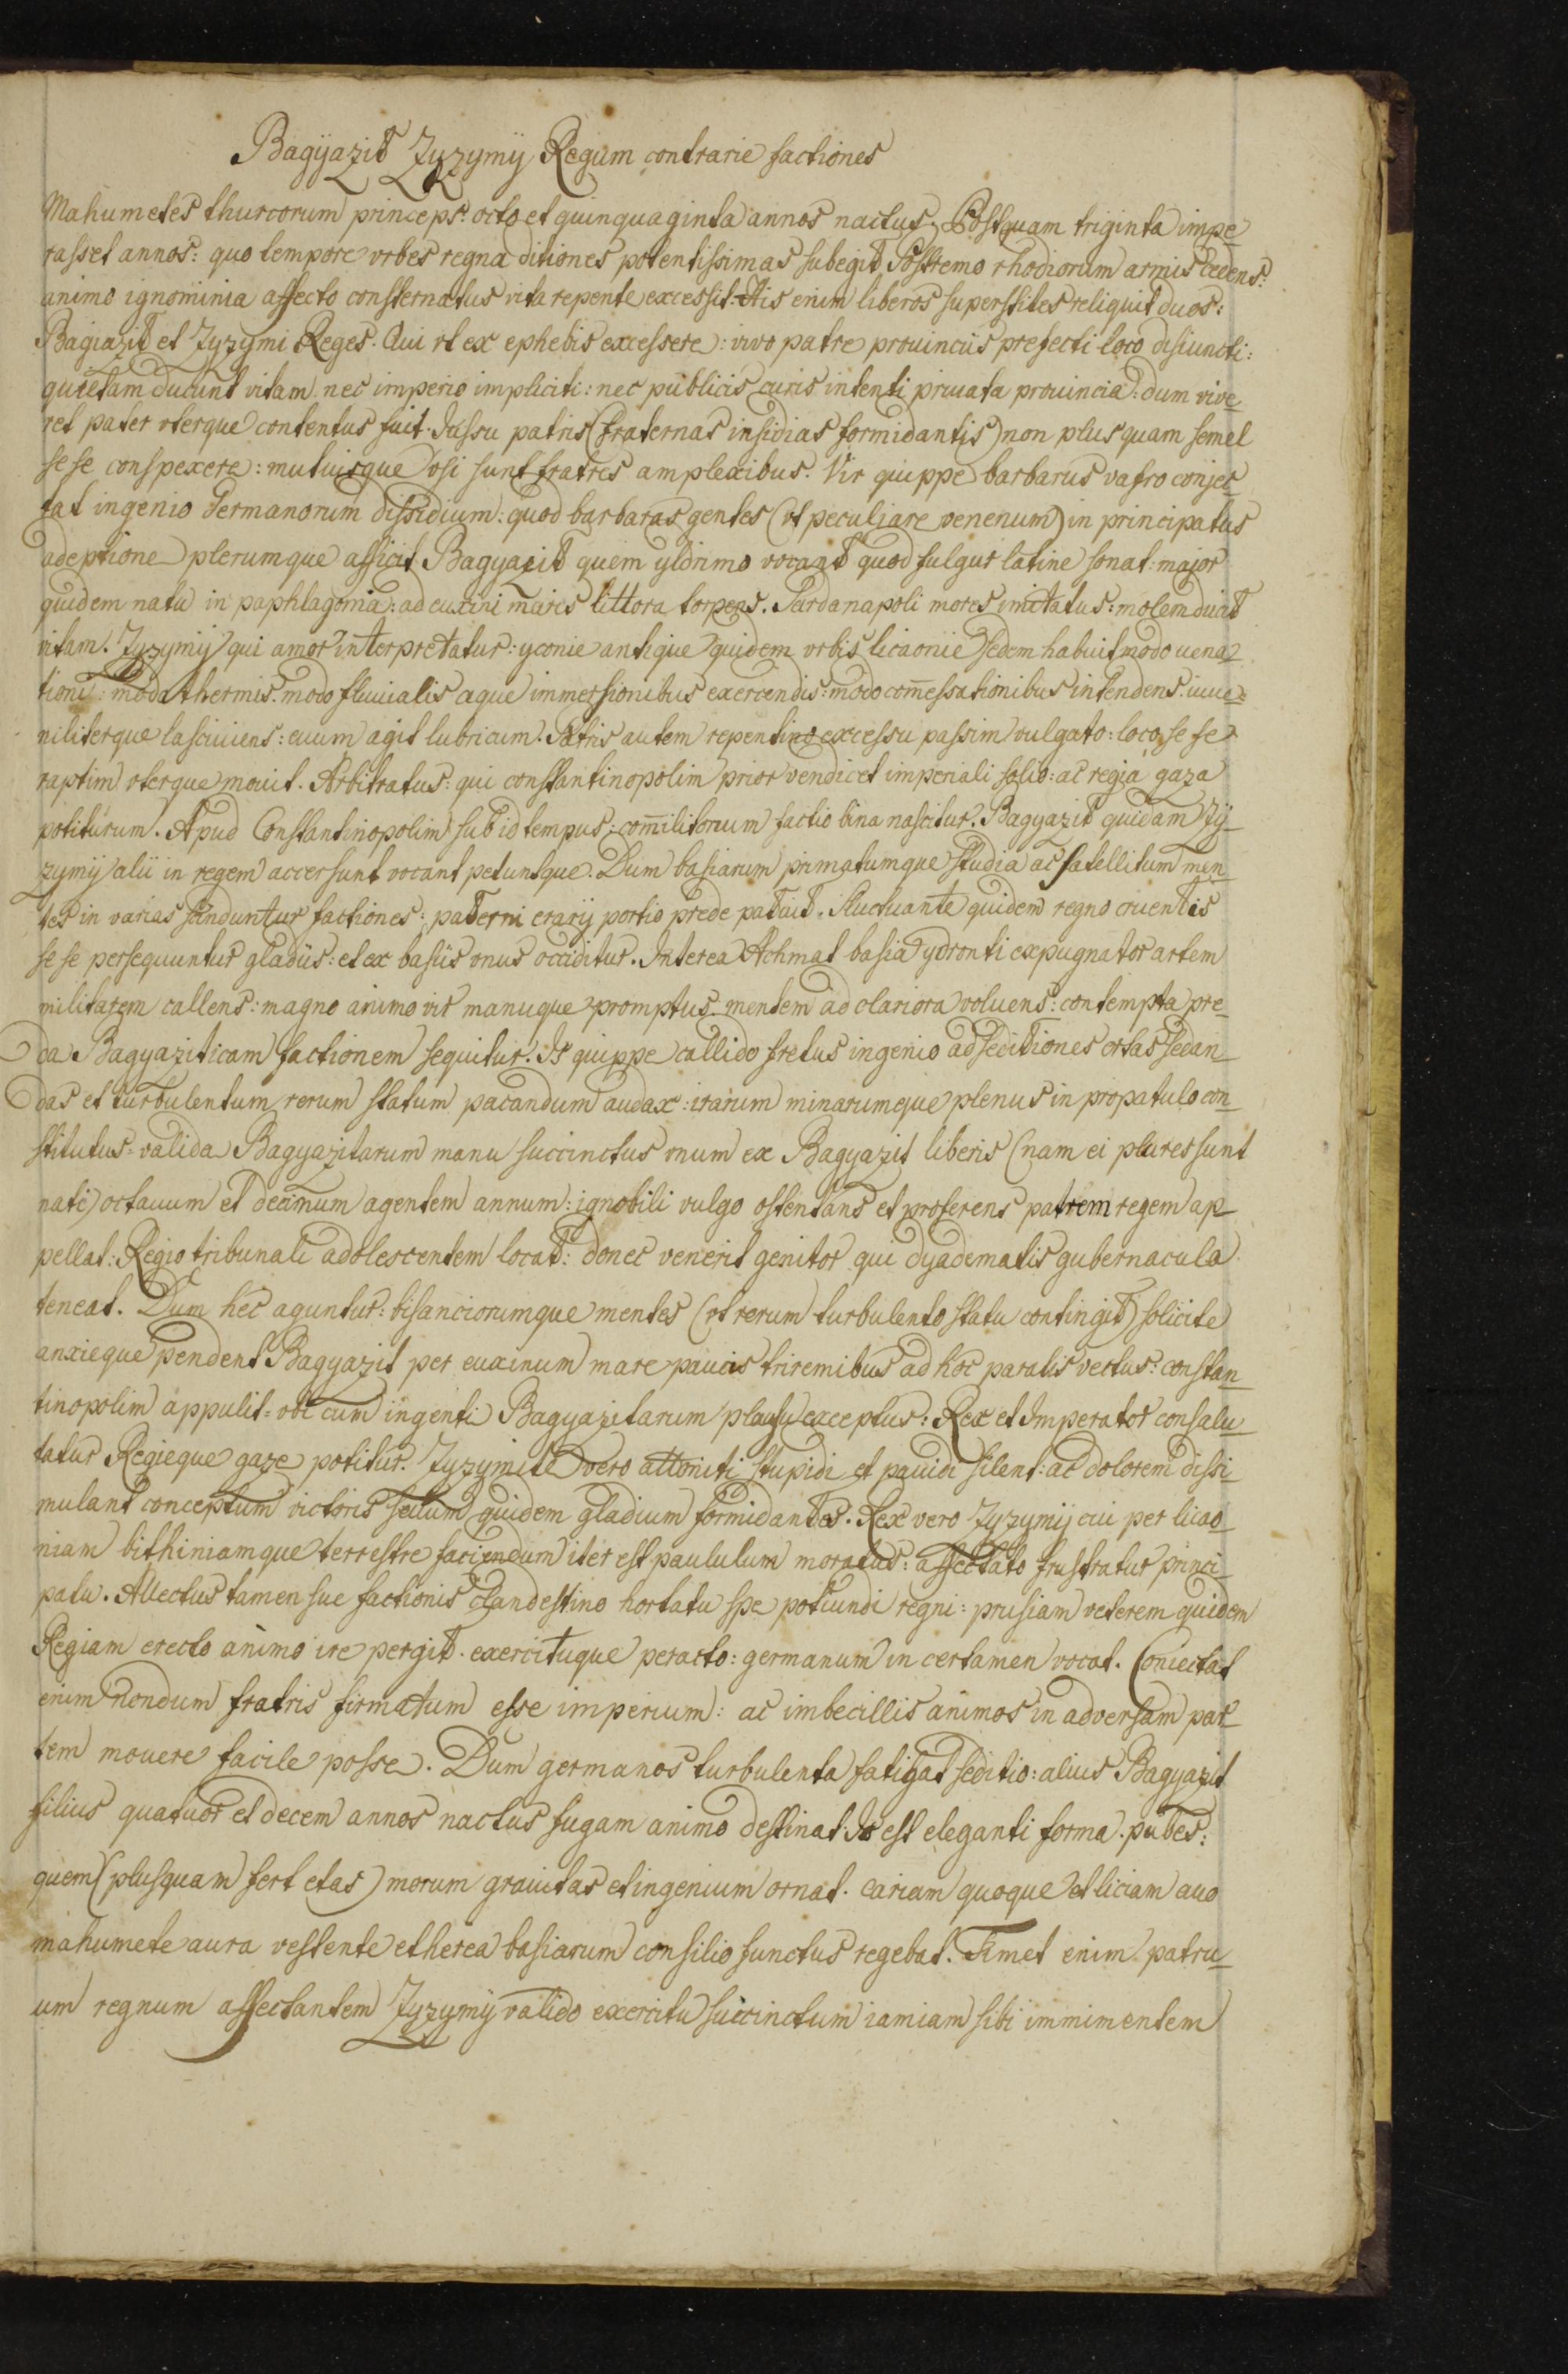 Bagyazit Zyzymy Regum contrarie factiones
Mahumetes thurcorum princeps: octo et quinquaginta annos nactus. Postquam triginta impe
rasset annos: quo tempore vrbes regna ditiones potentissimas subegit Postremo rhodiorum armis cedens:
animo ignominia affecto consternatus vita repente excessit. His enim liberos superstites reliquit duos:
Bagiazit et Zyzymi Reges. Qui vt ex ephebis excessere: vivo patre prouinciis prefecti loco disiuncti:
quietam ducunt vitam nec imperio impliciti: nec publicis curis intenti priuata prouincia: dum vive
ret pater vterque contentus fuit. Jussu patris (fraternas insidias formidantis) non plus quam semel
se se conspexere: mutuisque vsi sunt fratres amplexibus. Vir quippe barbarus vafro conjec
tat ingenio Germanorum dissidium: quod barbaras gentes (vt peculiare venenum) in principatus
adeptione plerumque afficit. Bagyazit quem yldrimo vocant quod fulgur latine sonat: major
quidem natu in paphlagonia: ad euxini maris littora torpens. Sardanapoli mores imitatus: molem ducit
vitam. Zyzymy qui amor interpretatur: yconie antique quidem vrbis licaonie sedem habuit modo uena
tioni: modo thermis: modo fluuialis aque immersionibus exercendis: modo com̄essationibus intendens: iuue
niliterque lasciuiens: euum agit lubricum. Patris autem repentino excessu passim vulgato: loco se se
raptim vterque mouit. Arbitratus: qui constantinopolim prior vendicet imperiali solio: ac regia gaza
potiturum. Apud Constantinopolim sub id tempus: com̄ilitonum factio bina nascitur. Bagyazit quidam Zy
zymy alii in regem accersunt vocant petuntque. Dum basiarum primatumque studia ac satellitum men
tes in varias scinduntur factiones: paterni erarij portio prede patuit. Fluctuante quidem regno cruentis
se se persequuntur gladiis: et ex basiis vnus occiditur. Interea Achmat basia ydronti expugnator artem
militarem callens: magno animo vir manuque promptus: mentem ad clariora voluens: contempta pre
da Bagyaziticam factionem sequitur. Is quippe callido fretus ingenio ad seditiones ortas sedan
das et turbulentum rerum statum pacandum audax: irarum minarumque plenus in propatulo con
stitutus: valida Bagyazitarum manu succinctus vnum ex Bagyazit liberis (nam ei plures sunt
nati) octauum et decimum agentem annum: ignobili vulgo ostentans et proferens patrem regem ap
pellat: Regio tribunali adolescentem locat: donec venerit genitor qui dyadematis gubernacula
teneat. Dum hec aguntur: bisanciorumque mentes (vt rerum turbulento statu contingit) solicite
anxieque pendent Bagyazit per euxinum mare paucis triremibus ad hoc paratis vectus: constan
tinopolim appulit: vbi cum ingenti Bagyazitarum plausu exceptus: Rex et Imperator consalu
tatur Regieque gaze potitur. Zyzymite vero attoniti stupidi et pauidi silent: ac dolorem dissi
mulant conceptum victoris seuum quidem gladium formidantes. Rex vero Zyzymy cui per licao
niam bithiniamque terrestre faciendum iter est paululum moratus: affectato frustratur princi
patu. Allectus tamen sue factionis clandestino hortatu spe potiundi regni: prusiam veterem quidem
Regiam erecto animo ire pergit. exercituque peracto: germanum in certamen vocat. Coniectat
enim nondum fratris firmatum esse imperium: ac imbecillis animos in adversam par
tem mouere facile posse. Dum germanos turbulenta fatigat seditio: alius Bagyazit
filius quatuor et decem annos nactus fugam animo destinat. Is est eleganti forma. pubes:
quem (plusquam fert etas) morum grauitas et ingenium ornat. cariam quoque et liciam auo
mahumete aura vestente etherea basiarum consilio functus regebat. Timet enim patru
um regnum affectantem Zyzymy valido exercitu succinctum iamiam sibi immimentem